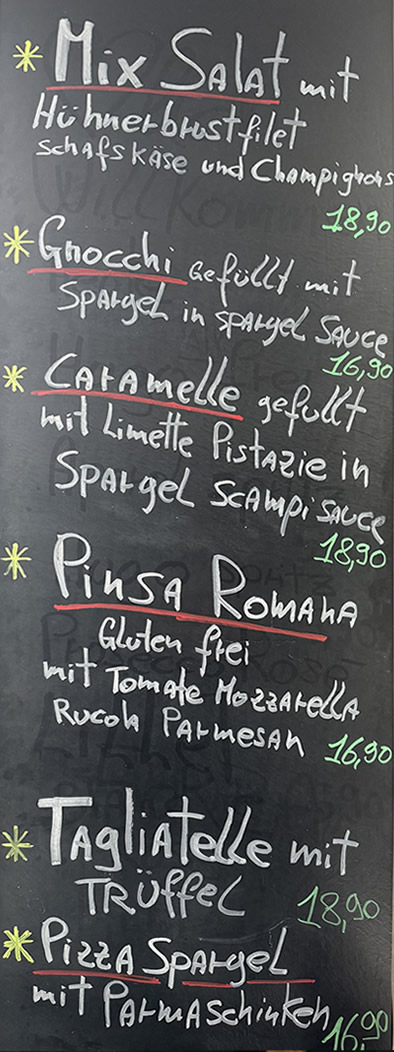 * Mix Salat mit
Hühnerbrustfilet
Schafskäse und Champignons
18,90
* Gnocchi gefüllt mit
Spargel in Spargel Sauce
16,90
* Caramelle gefüllt
mit Limette Pistazie in
Spargel Scampi Sauce
18,90
* Pinsa Romana
Gluten frei
mit Tomate Mozzarella
Rucola Parmesan 16,90
* Tagliatelle mit
Trüffel 18,90
* Pizza Spargel
mit Parmaschinken 16,90